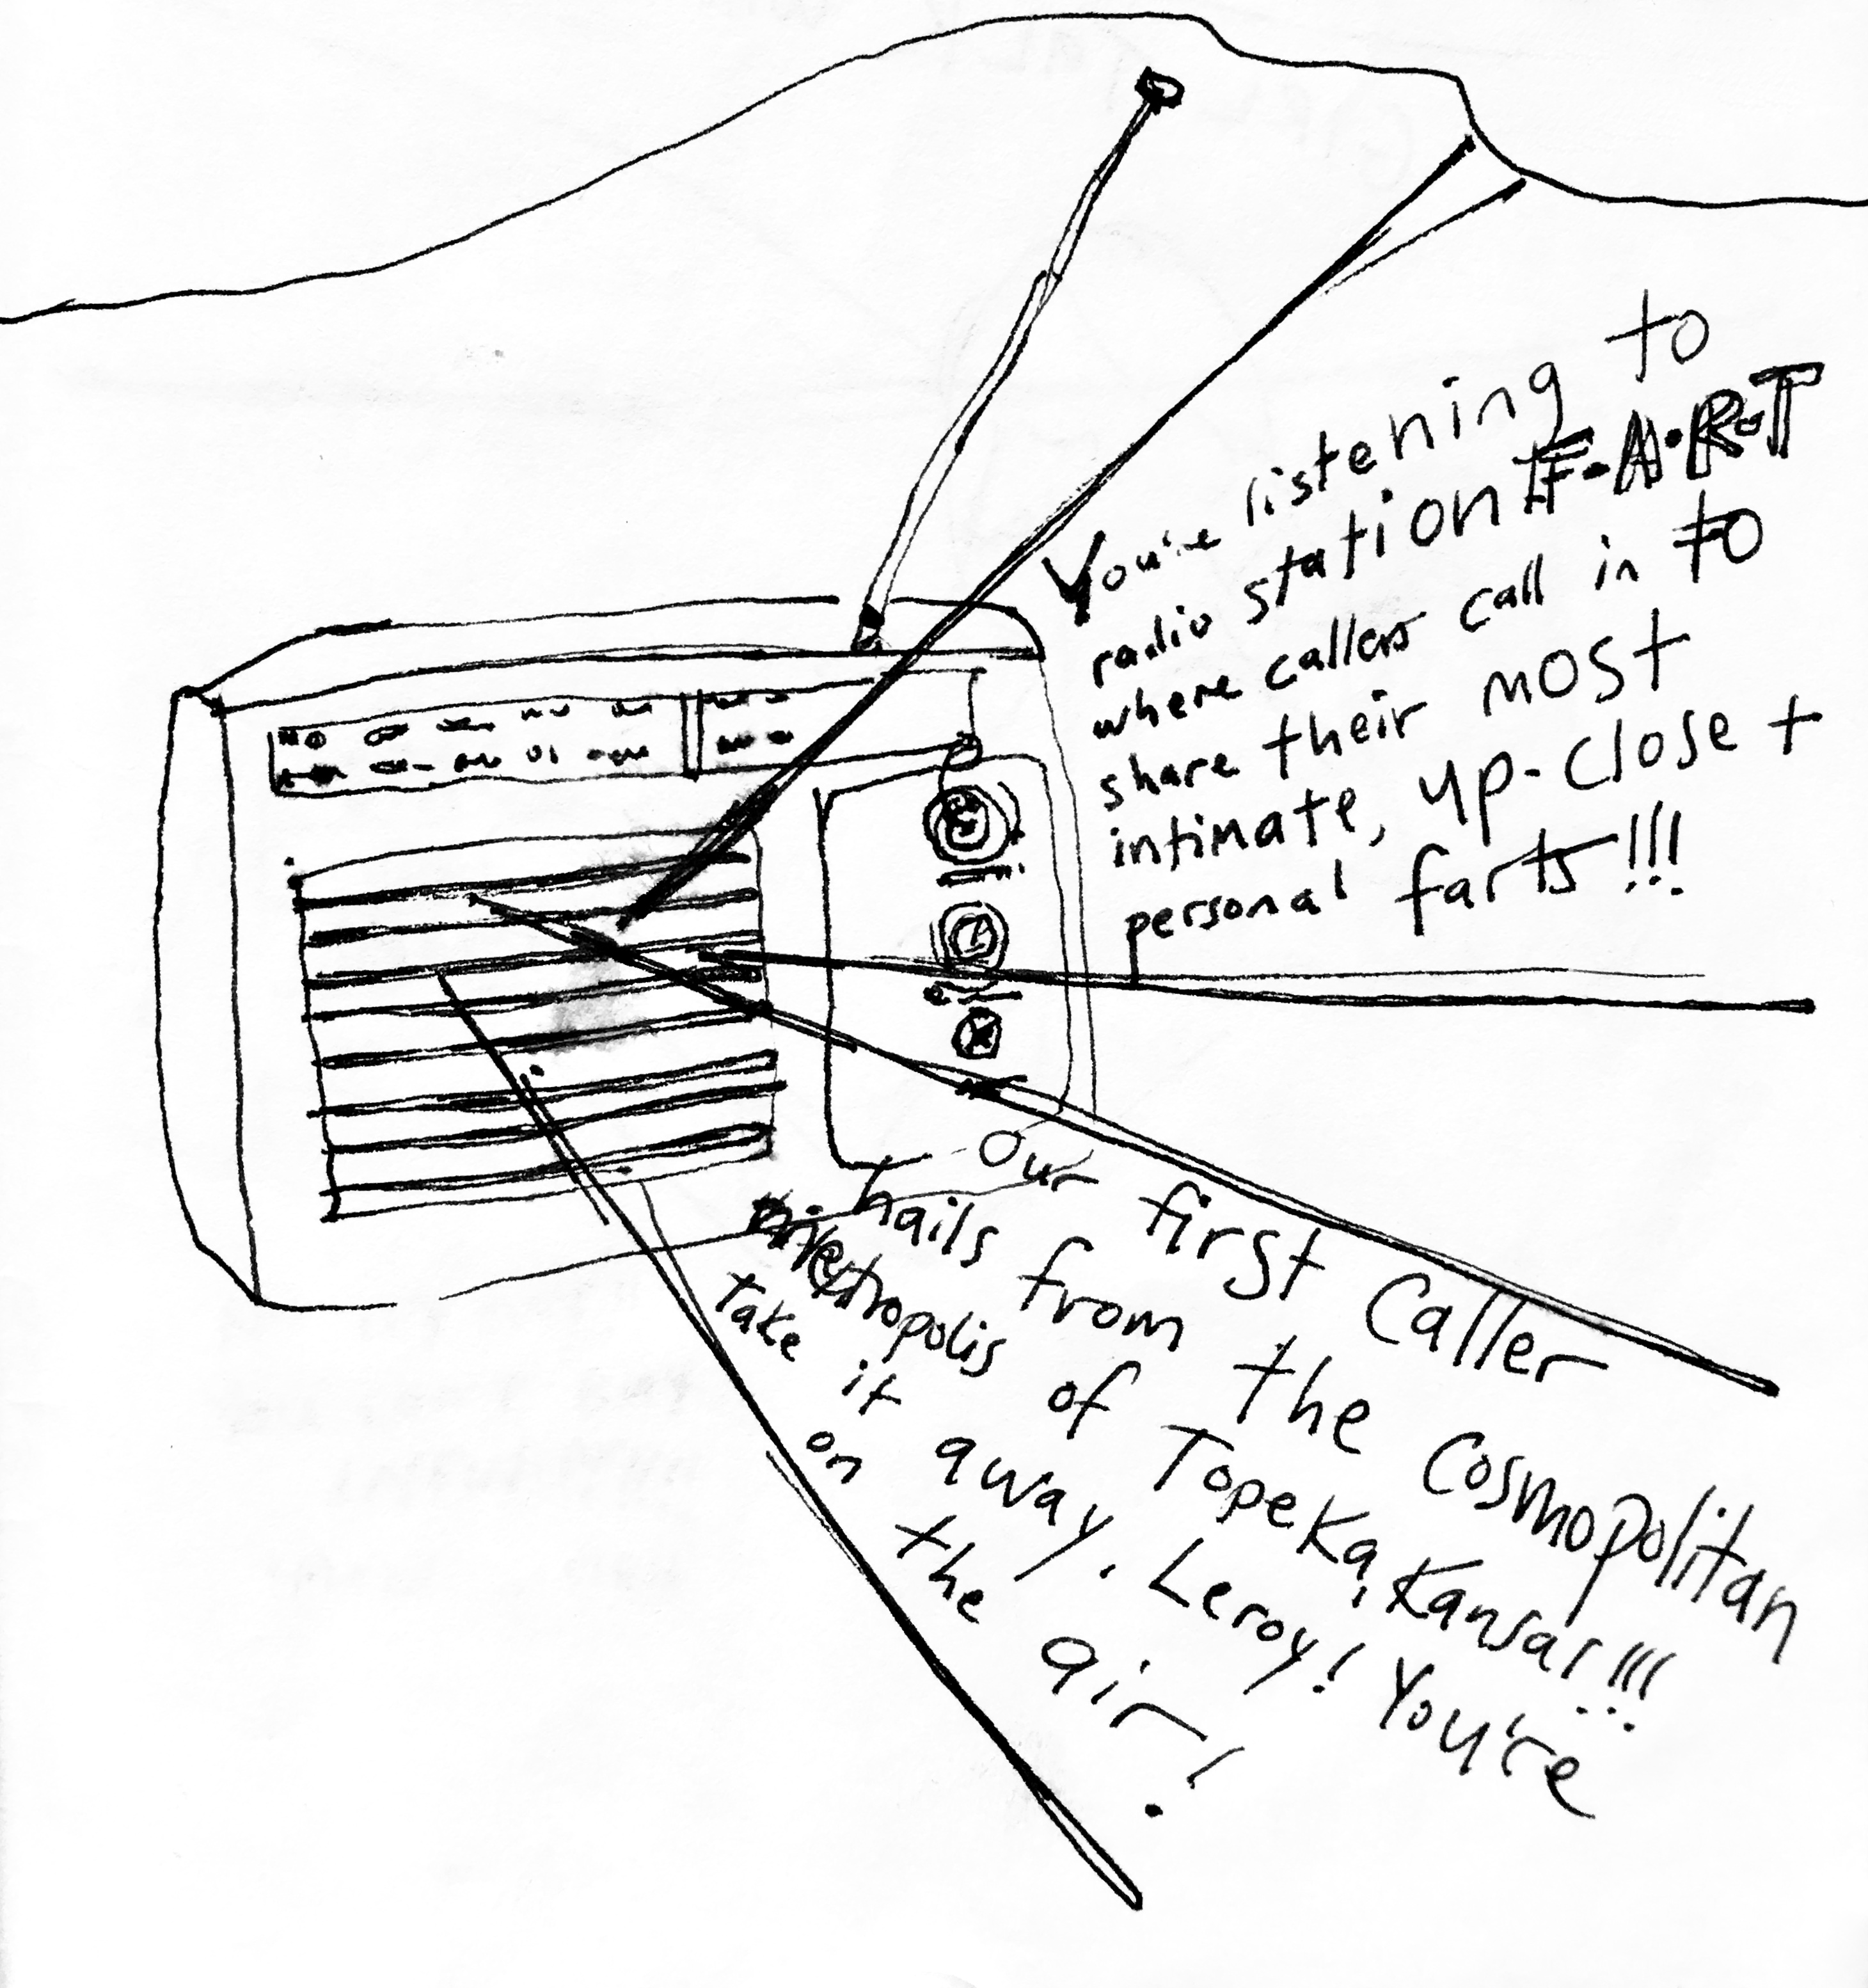 You're listening to
radio station F·A·R·T
where callers call in to
share their most
intimate, up-close +
personal farts!!!
Our first caller
hails from the cosmopolitan
metropolis of Topeka, Kansas!!!
Take it away, Leroy! You're
on the air!